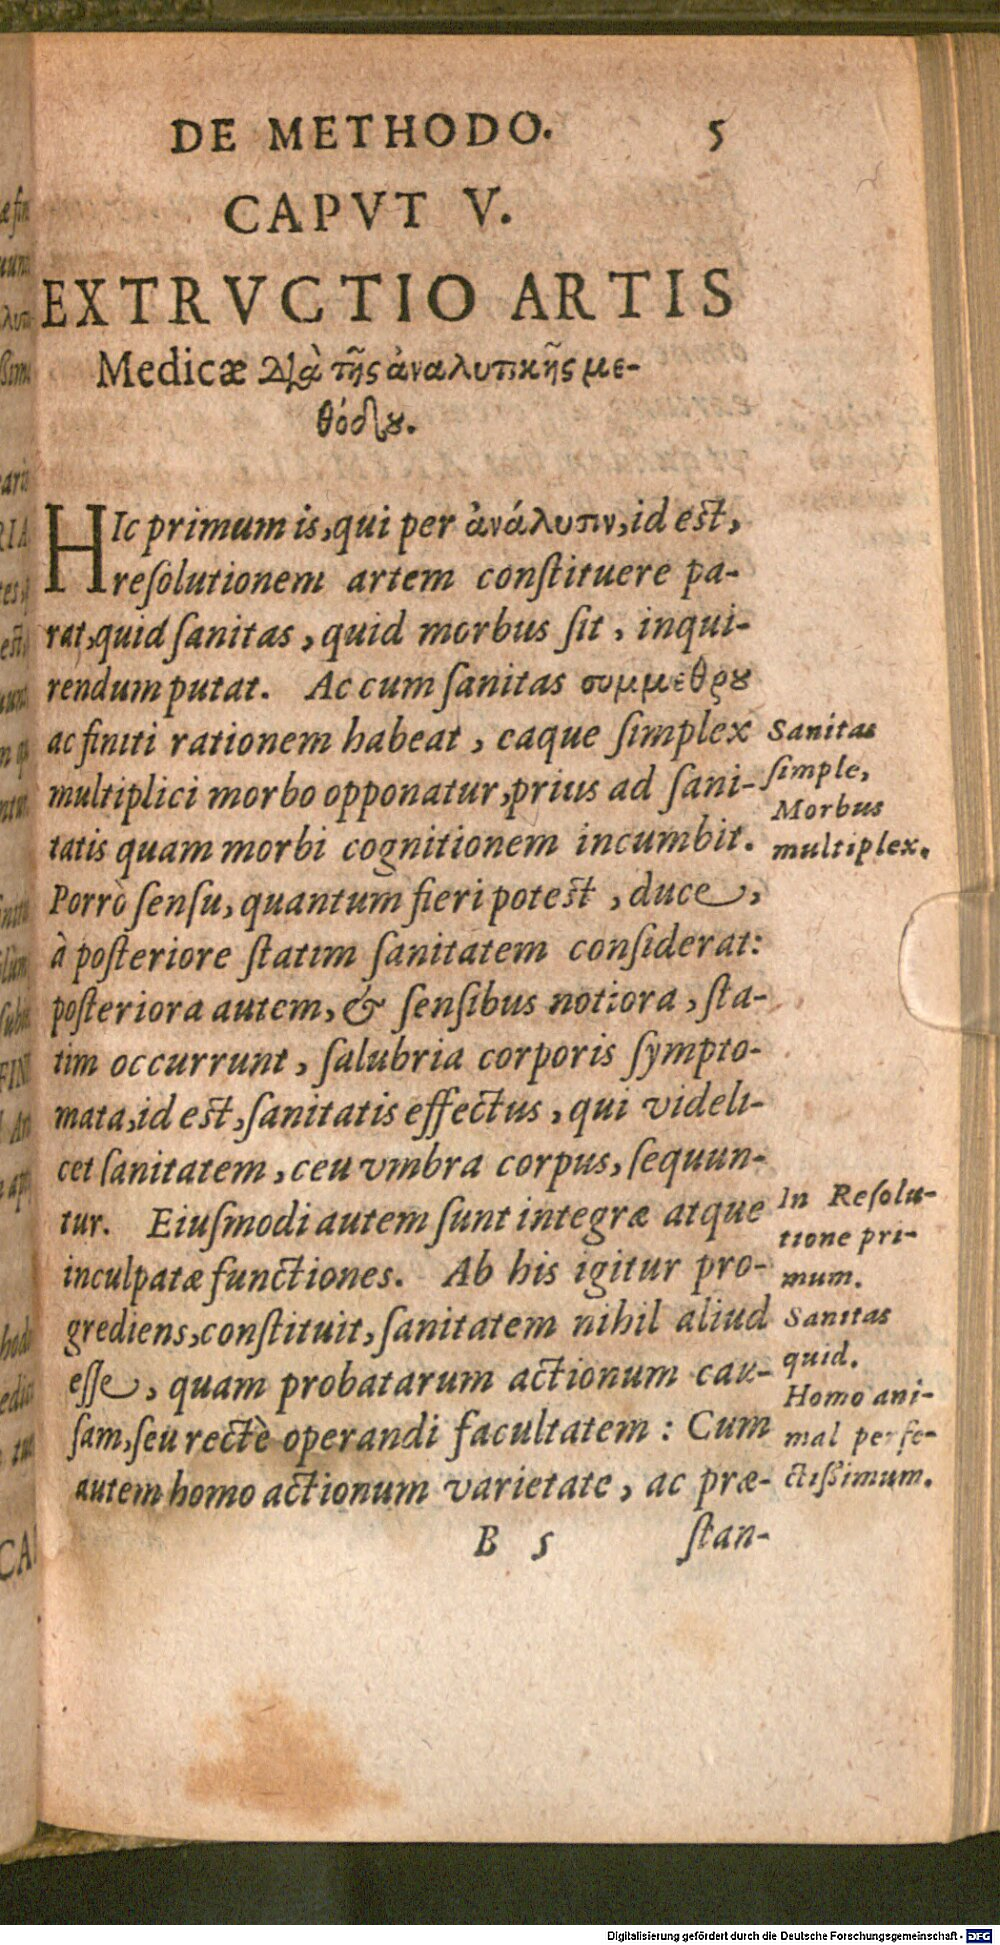 DE METHODO. 5
CAPVT V.
EXTRVCTIO ARTIS
Medicæ Διὰ τῆς ἀναλυτικῆς με-
θόδου.
HIc primum is, qui per ἀνάλυσιν, id est,
reſolutionem artem conſtituere pa-
rat, quid ſanitas, quid morbus ſit, inqui-
rendum putat. Ac cum ſanitas συμμέθρου
ac finiti rationem habeat, eaque ſimplex
multiplici morbo opponatur, prius ad ſani-
tatis quam morbi cognitionem incumbit.
Porrò ſenſu, quantum fieri poteſt, duce,
à poſteriore ſtatim ſanitatem conſiderat:
poſteriora autem, & ſenſibus notiora, ſta-
tim occurrunt, ſalubria corporis ſympto-
mata, id eſt, ſanitatis effectus, qui videli-
cet ſanitatem, ceu vmbra corpus, ſequun-
tur. Eiuſmodi autem ſunt integræ atque
inculpatæ functiones. Ab his igitur pro-
grediens, conſtituit, ſanitatem nihil aliud
eſſe, quam probatarum actionum cau-
ſam, ſeu rectè operandi facultatem: Cum
autem homo actionum varietate, ac præ-
B 5 ſtan-
Sanitas
ſimple,
Morbus
multiplex.
In Reſolu-
tione pri-
mum.
Sanitas
quid.
Homo ani-
mal perfe-
ctiſſimum.
Digitalisierung gefördert durch die Deutsche Forschungsgemeinschaft - DFG